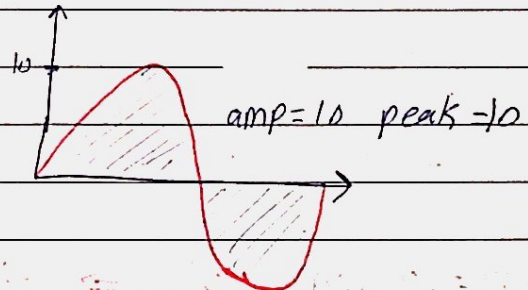 10
amp=10 peak=10